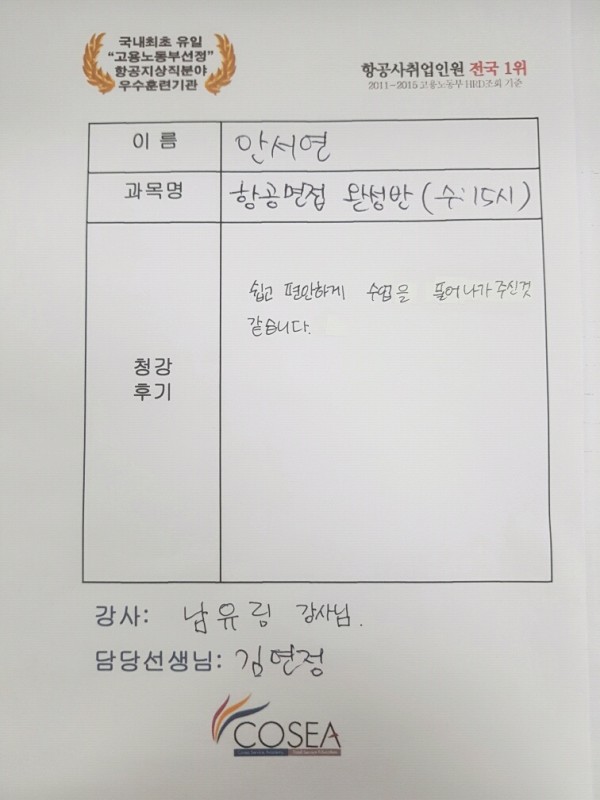 국내최초 유일
"고용노동부선정"
항공지상직분야
우수훈련기관
항공사취업인원 전국 1위
2011~2015 고용노동부 HRD조회 기준
이 름
안서연
과목명
항공면접 완성반 (수:15시)
청강
후기
쉽고 편안하게 수업을 풀어나가 주신것
같습니다.
강사: 남유림 강사님.
담당선생님: 김연정
COSEA